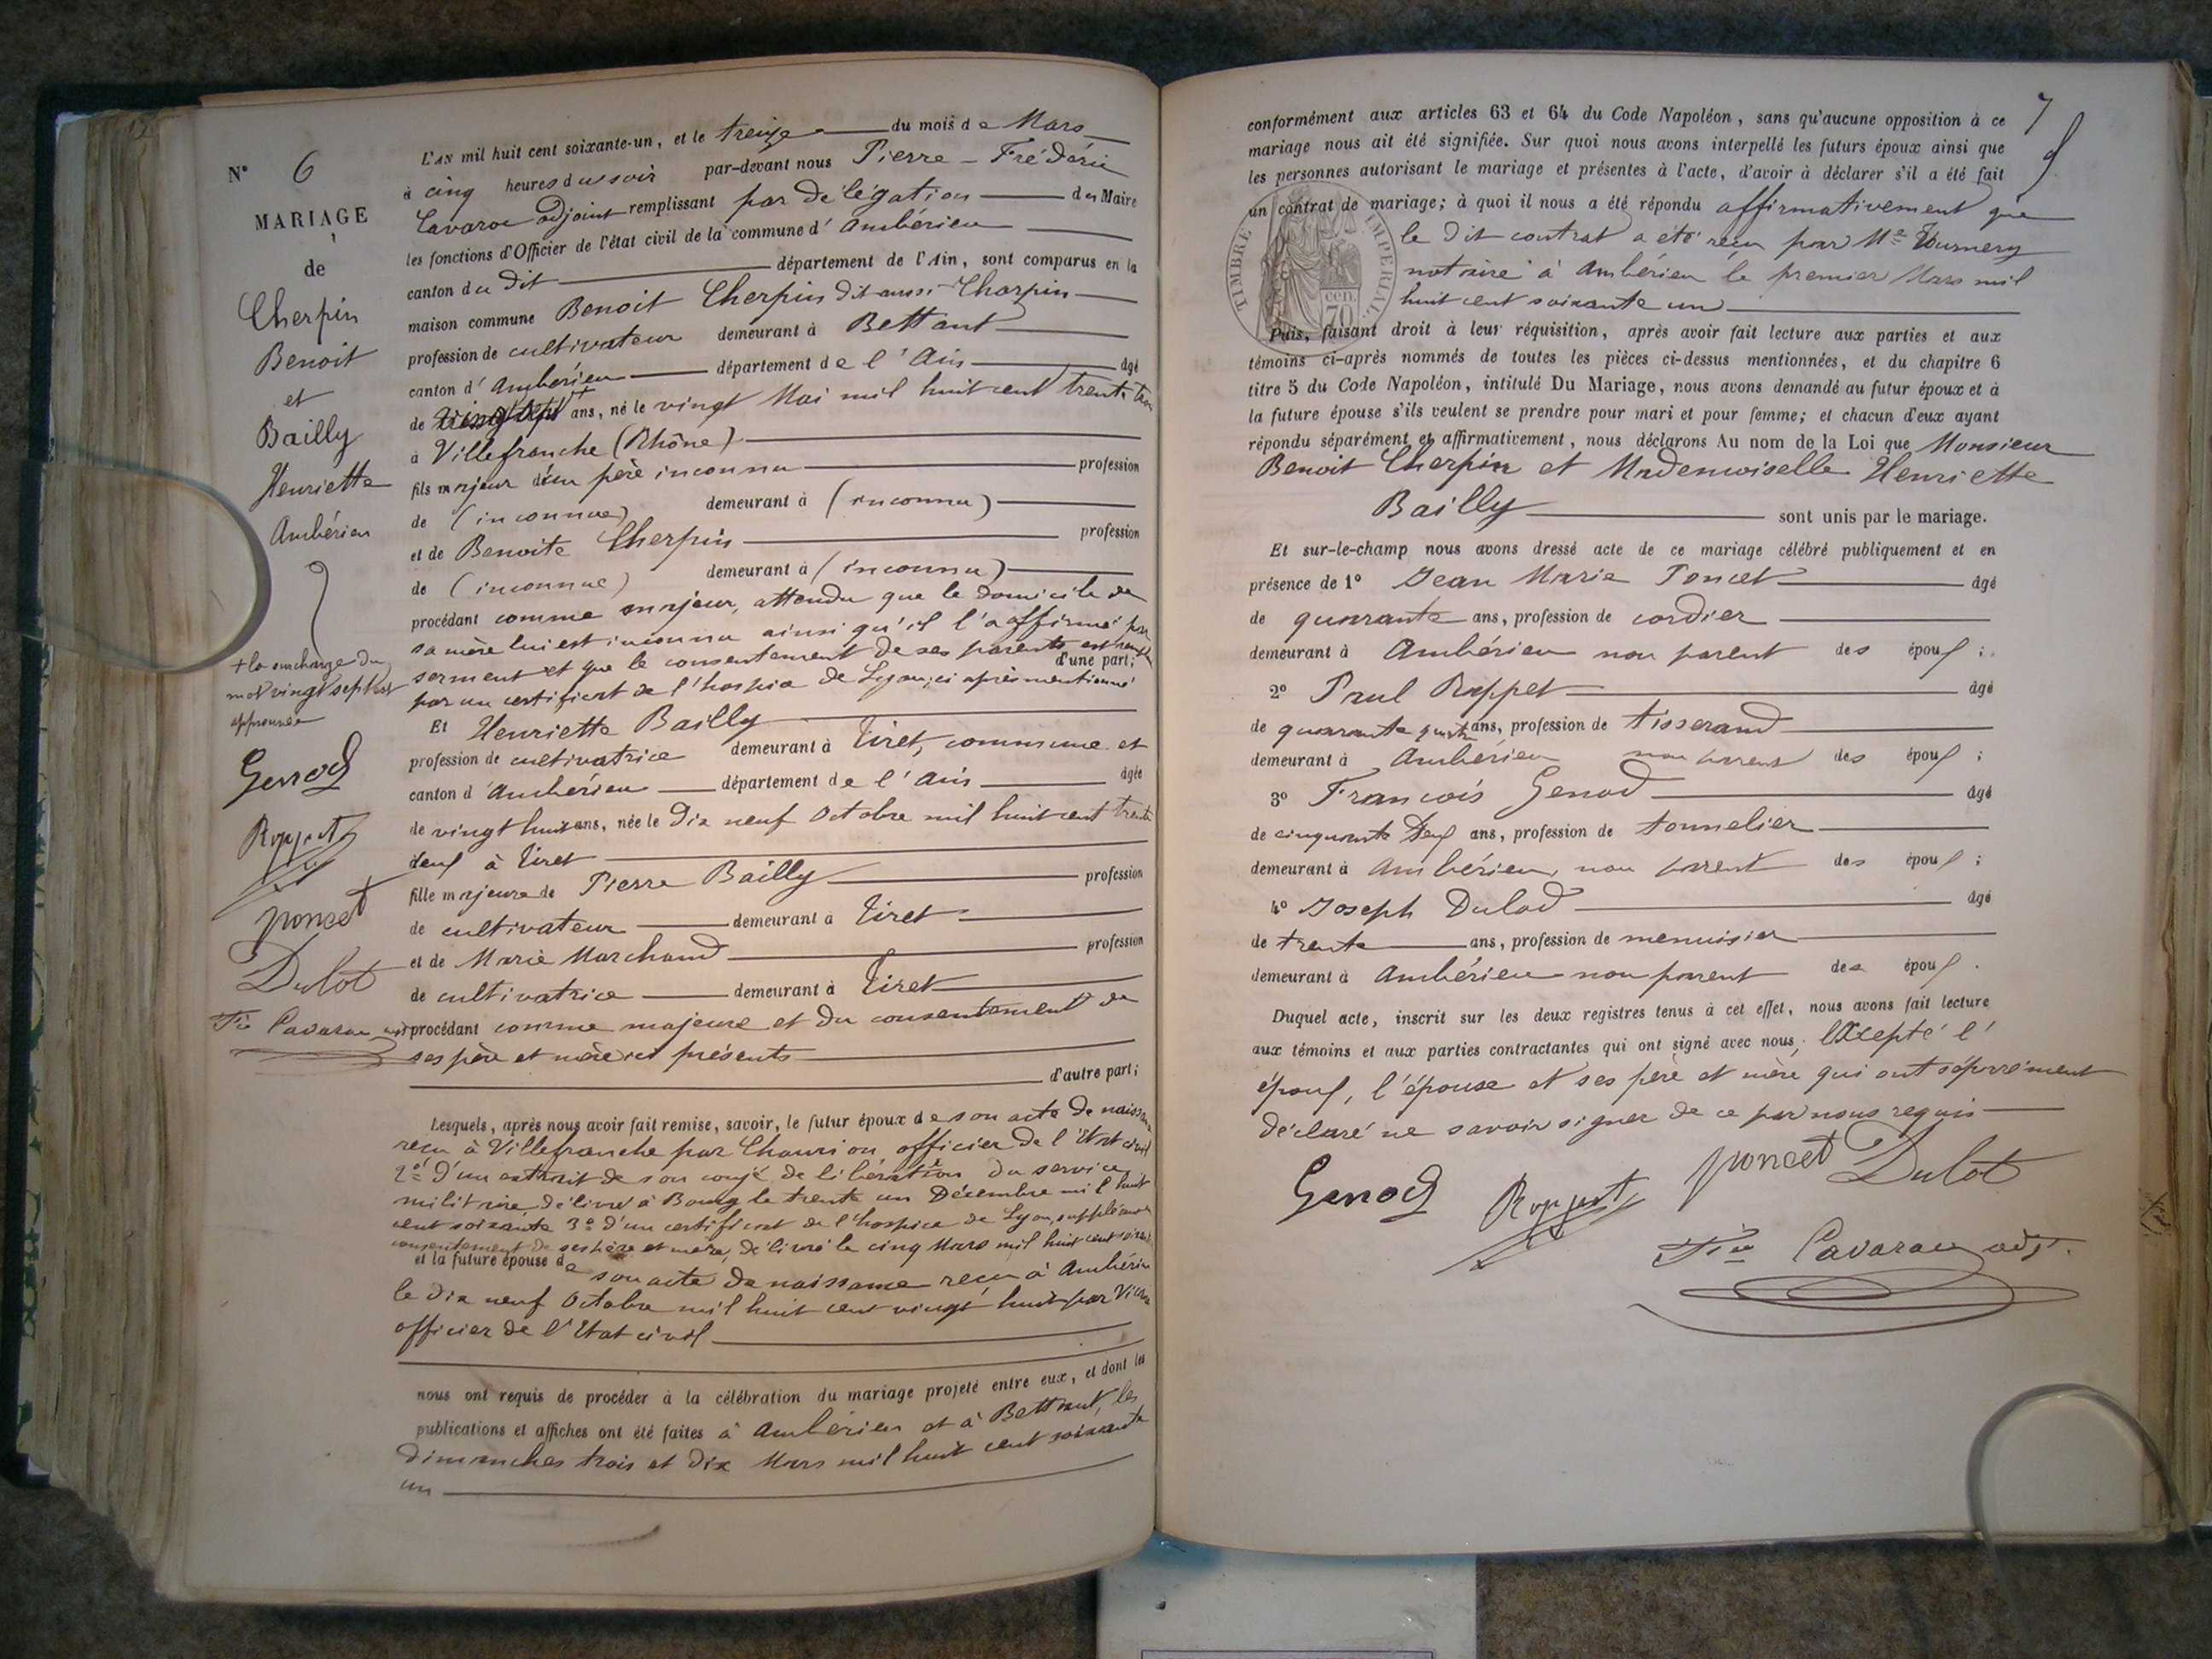 N° 6
MARIAGE
de
Cherpin
Benoit
et
Bailly
Henriette
Ambérieu
+ la surcharge du
mot vingt sept est
approuvée
Genod
Roppet
poncet
Dulot
Fic Cavaroc adj
L'AN mil huit cent soixante-un, et le treize du mois de Mars
à cinq heures du soir par-devant nous Pierre-Frédéric
Cavaroc adjoint remplissant par délégation du Maire
les fonctions d'Officier de l'état civil de la commune d'Ambérieu
canton du dit département de l'Ain, sont comparus en la
maison commune Benoit Cherpin dit aussi Charpin
profession de cultivateur demeurant à Bettant
canton d'Ambérieu département de l'Ain âgé
de vingt sept + ans, né le vingt Mai mil huit cent trente trois
à Villefranche (Rhône)
fils majeur d'un père inconnu profession
de (inconnue) demeurant à (inconnu)
et de Benoite Cherpin profession
de (inconnue) demeurant à (inconnu)
procédant comme majeur, attendu que le domicile de
sa mère lui est inconnu ainsi qu'il l'a affirmé par
serment et que le consentement de ses parents est
d'une part;
par un certificat de l'hospice de Lyon, ci après mentionné
Et Henriette Bailly
profession de cultivatrice demeurant à Tiret, commune et
canton d'Ambérieu département de l'Ain âgée
de vingt huit ans, née le dix neuf Octobre mil huit cent trente
deux à Tiret
fille majeure de Pierre Bailly profession
de cultivateur demeurant à Tiret
et de Marie Marchand profession
de cultivatrice demeurant à Tiret
procédant comme majeure et du consentement de
ses père et mère ici présents
d'autre part;
Lesquels, après nous avoir fait remise, savoir, le futur époux de son acte de naissance
reçu à Villefranche par officier de l'Etat civil
2° d'un extrait de son congé de libération du service
militaire délivré à Bourg le trente un Décembre mil huit
cent soixante 3° d'un certificat de l'hospice de Lyon, suppléant
consentement de ses père et mère, délivré le cinq Mars mil huit cent
et la future épouse de son acte de naissance reçu à Ambérieu
le dix neuf Octobre mil huit cent vingt huit par
officier de l'Etat civil
nous ont requis de procéder à la célébration du mariage projeté entre eux, et dont les
publications et affiches ont été faites à Ambérieu et à Bettant, les
dimanches trois et dix Mars mil huit cent soixante
un
7
conformément aux articles 63 et 64 du Code Napoléon, sans qu'aucune opposition à ce
mariage nous ait été signifiée. Sur quoi nous avons interpellé les futurs époux ainsi que
les personnes autorisant le mariage et présentes à l'acte, d'avoir à déclarer s'il a été fait
un contrat de mariage; à quoi il nous a été répondu affirmativement que
le dit contrat a été reçu par Me Tournery
notaire à Ambérieu le premier Mars mil
huit cent soixante un
TIMBRE IMPERIAL
70 cen.
Puis, faisant droit à leur réquisition, après avoir fait lecture aux parties et aux
témoins ci-après nommés de toutes les pièces ci-dessus mentionnées, et du chapitre 6
titre 5 du Code Napoléon, intitulé Du Mariage, nous avons demandé au futur époux et à
la future épouse s'ils veulent se prendre pour mari et pour femme; et chacun d'eux ayant
répondu séparément et affirmativement, nous déclarons Au nom de la Loi que Monsieur
Benoit Cherpin et Mademoiselle Henriette
Bailly sont unis par le mariage.
Et sur-le-champ nous avons dressé acte de ce mariage célébré publiquement et en
présence de 1° Jean Marie Poncet âgé
de quarante ans, profession de cordier
demeurant à Ambérieu non parent des époux;
2° Paul Roppet âgé
de quarante quatre ans, profession de tisserand
demeurant à Ambérieu non parent des époux;
3° François Genod âgé
de cinquante deux ans, profession de tonnelier
demeurant à Ambérieu, non parent des époux;
4° Joseph Dulod âgé
de trente ans, profession de menuisier
demeurant à Ambérieu non parent des époux.
Duquel acte, inscrit sur les deux registres tenus à cet effet, nous avons fait lecture
aux témoins et aux parties contractantes qui ont signé avec nous, excepté l'
époux, l'épouse et ses père et mère qui ont séparément
déclaré ne savoir signer de ce par nous requis
Genod Roppet poncet Dulot
Fic Cavaroc adj.